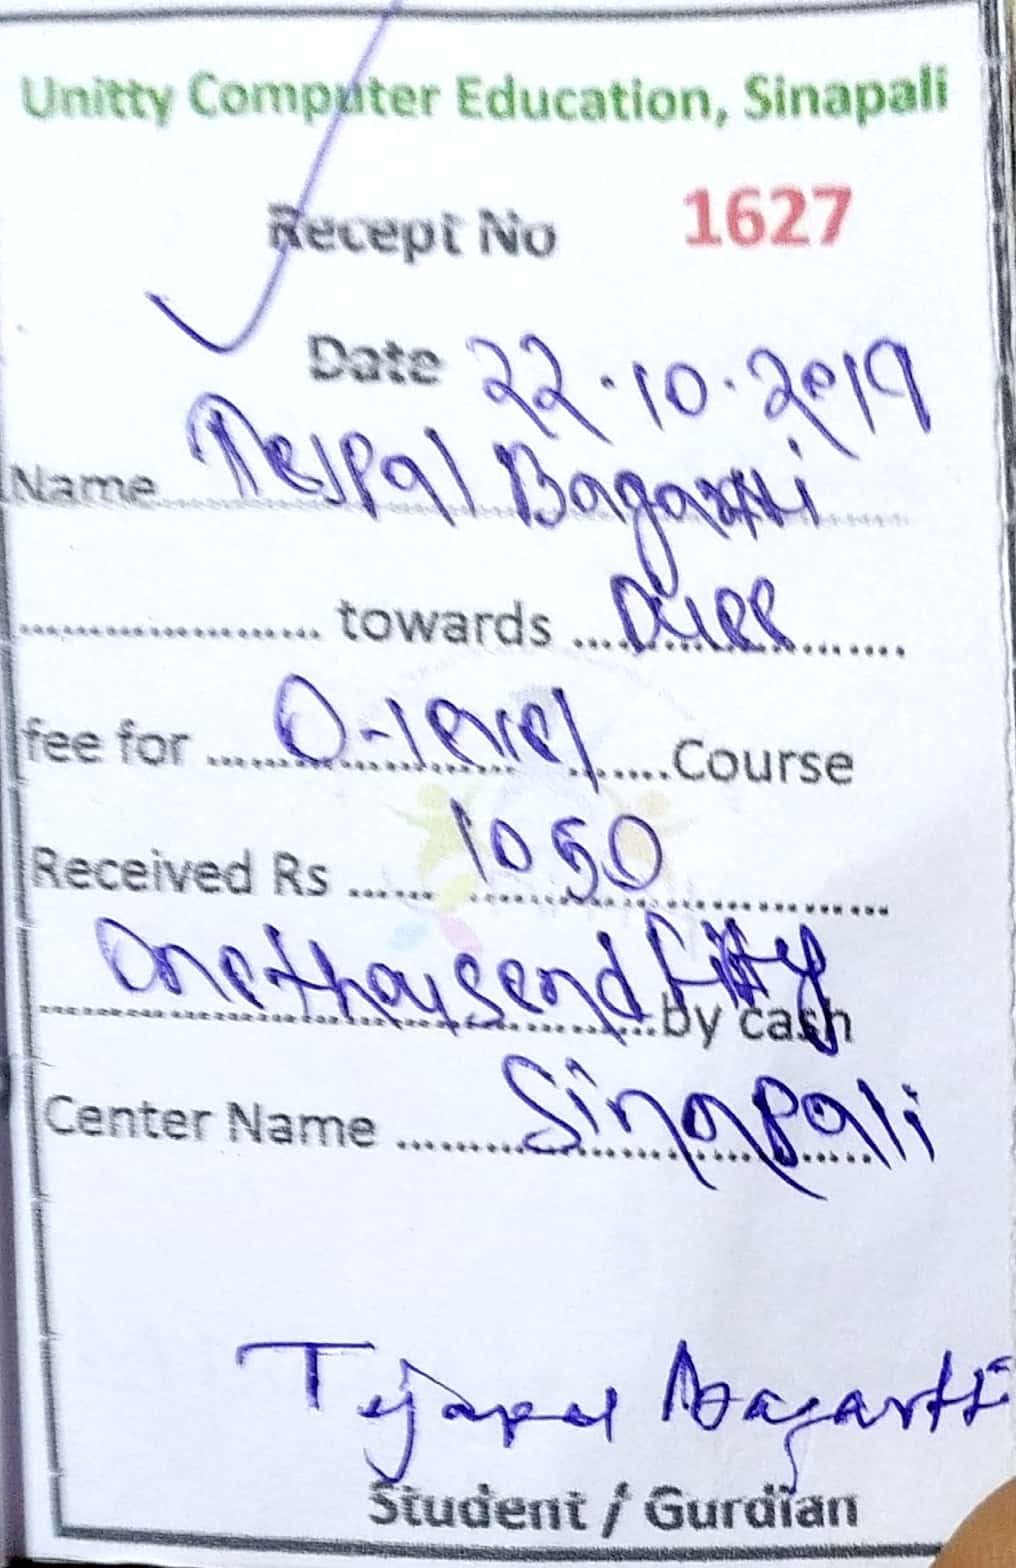 Unitty Computer Education, Sinapali
Recept No 1627
Date 22.10.2019
Name Tejpal Bagartti
.................... towards ....Dues........
fee for .....O-level.....Course
Received Rs ...... 1050
One thousend fifty
..........by cash
Center Name ........ Sinapali
Tejapal Bagartti
Student / Gurdian